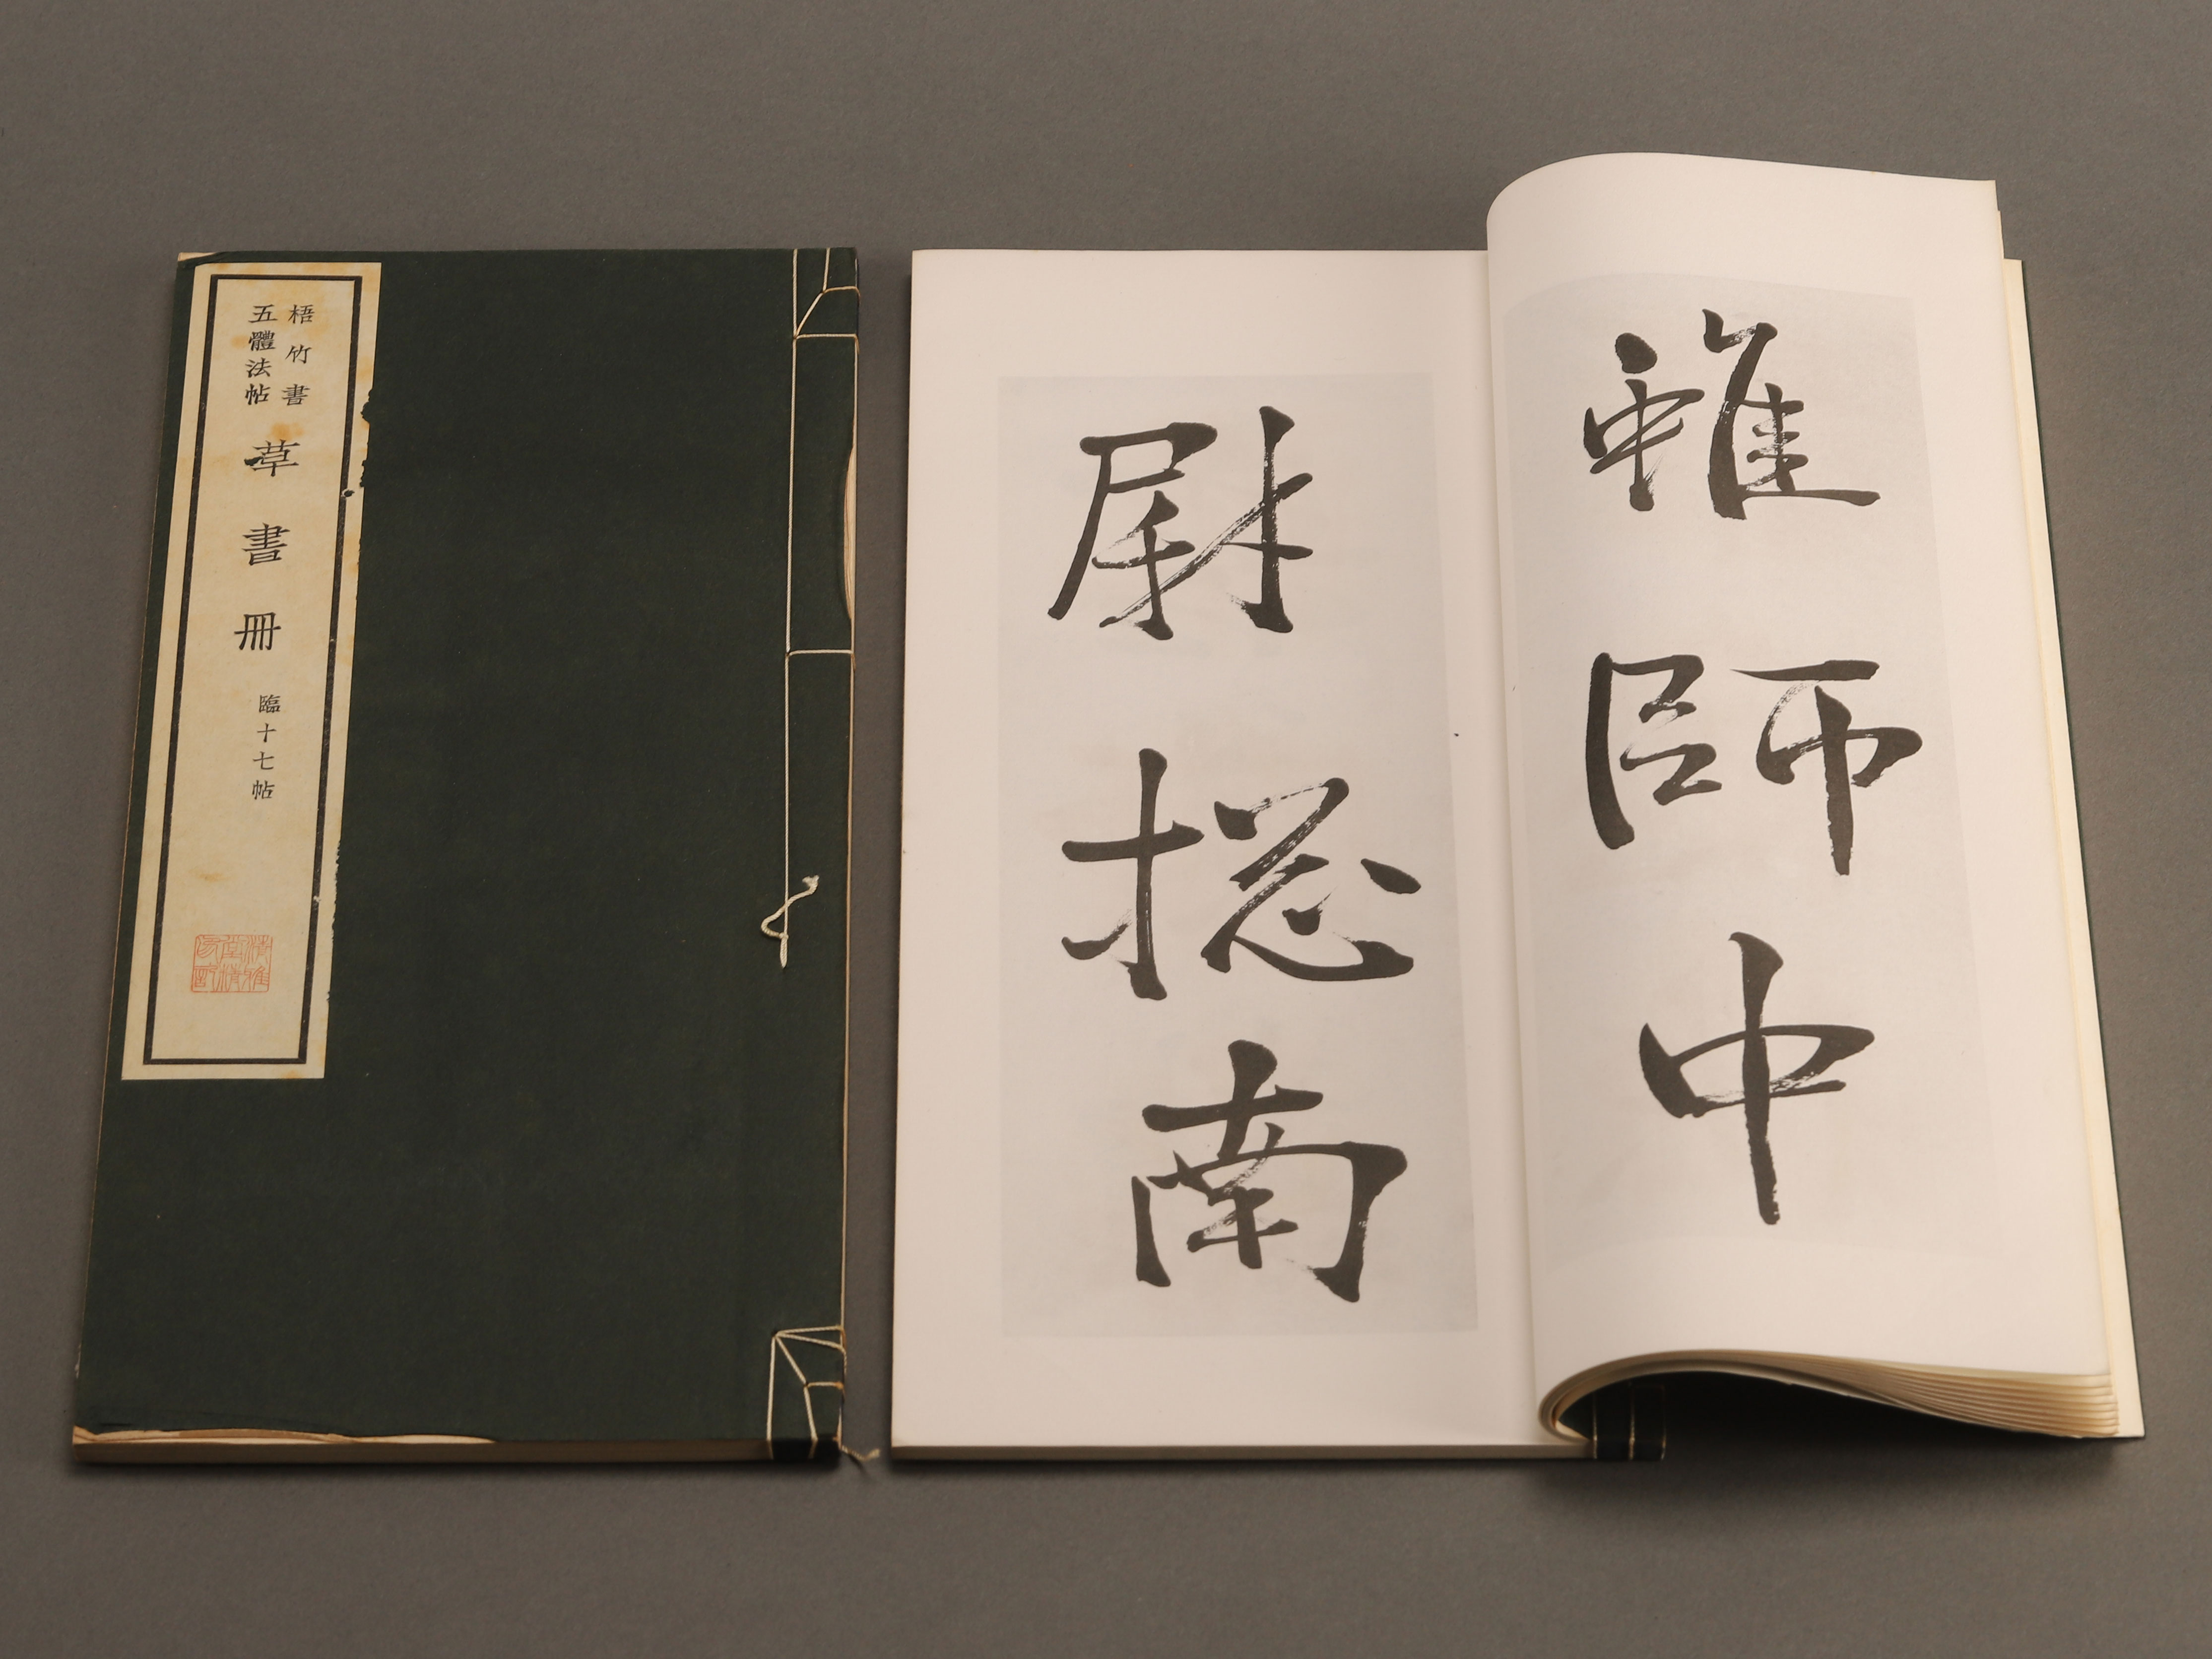 梧竹書
五體法帖
草書冊
臨十七帖
雖師中
尉摠南